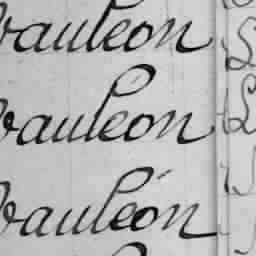 Vauleon
Vauleon
Vauléon